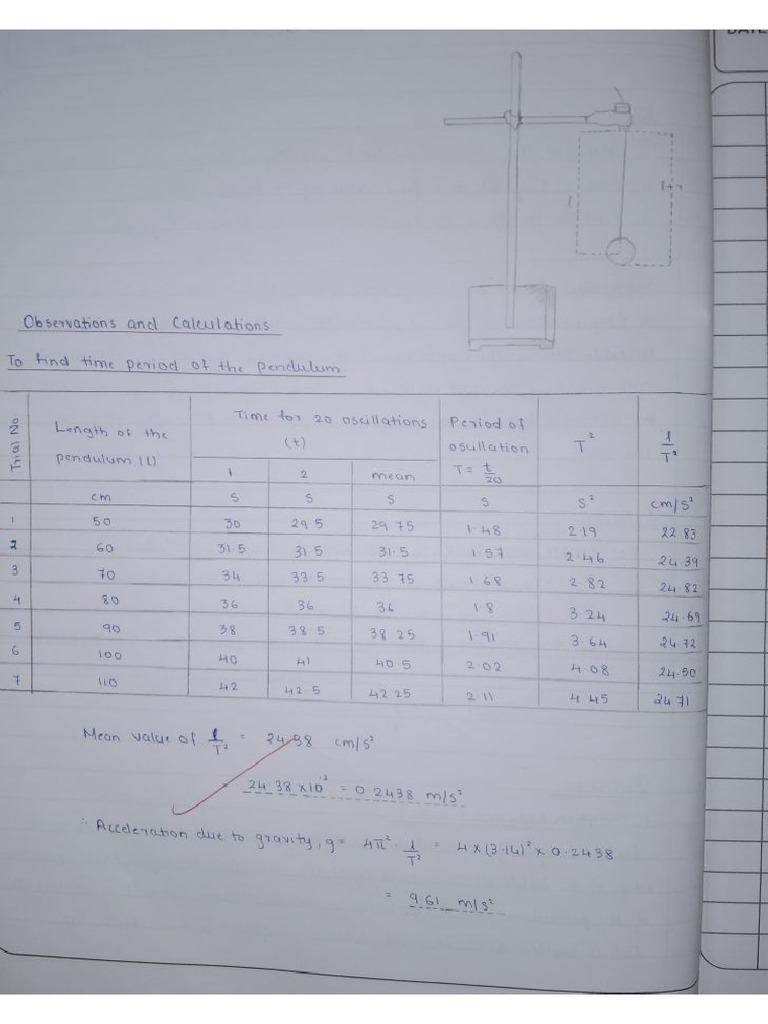 DATE
l
l+r
Observations and Calculations
To find time period of the pendulum
Trial No | Length of the pendulum (l) | Time for 20 oscillations (t) | Period of oscillation T = t/20 | T² | l/T²
1 | 2 | mean
cm | s | s | s | s | s² | cm/s²
1 | 50 | 30 | 29.5 | 29.75 | 1.48 | 2.19 | 22.83
2 | 60 | 31.5 | 31.5 | 31.5 | 1.57 | 2.46 | 24.39
3 | 70 | 34 | 33.5 | 33.75 | 1.68 | 2.82 | 24.82
4 | 80 | 36 | 36 | 36 | 1.8 | 3.24 | 24.69
5 | 90 | 38 | 38.5 | 38.25 | 1.91 | 3.64 | 24.72
6 | 100 | 40 | 41 | 40.5 | 2.02 | 4.08 | 24.50
7 | 110 | 42 | 42.5 | 42.25 | 2.11 | 4.45 | 24.71
Mean value of l/T² = 24.38 cm/s²
= 24.38 × 10⁻² = 0.2438 m/s²
∴ Acceleration due to gravity, g = 4π² · l/T² = 4 × (3.14)² × 0.2438
= 9.61 m/s²